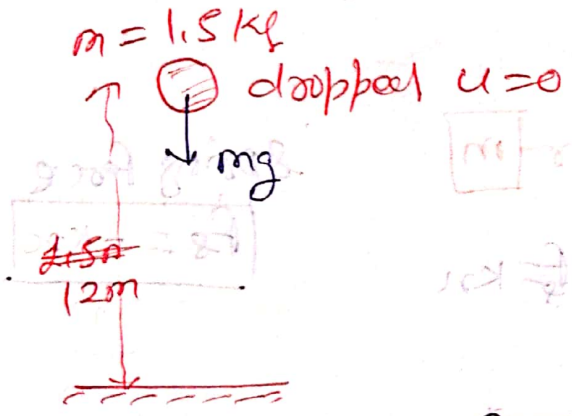 m = 1.5 kg
dropped u=0
mg
12m